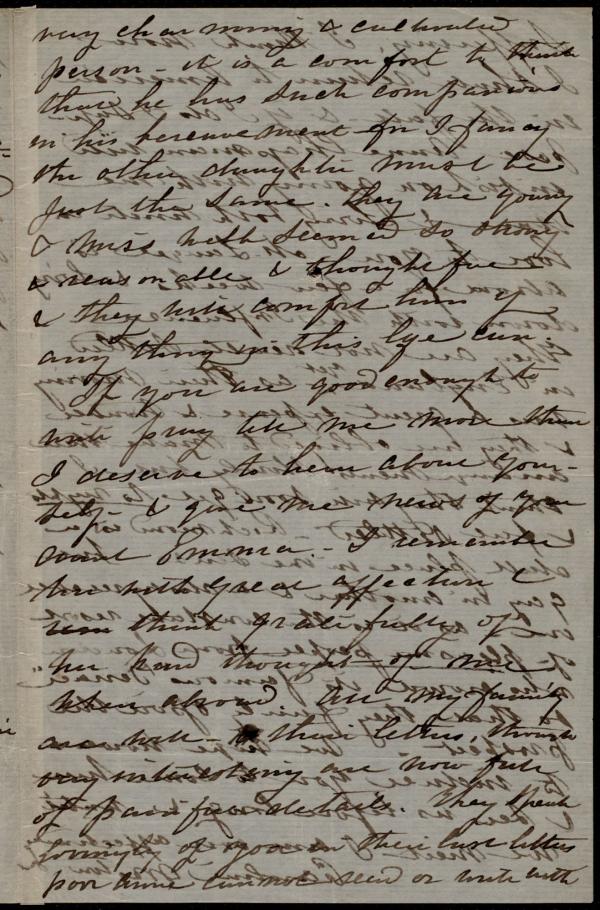 very charming & cultivated
person - it is a comfort to think
that he has such companions
in his bereavement for I fancy
the other daughter must be
just the same. They are young
& Miss Nell seemed so strong
& reasonable & thoughtful
& they will comfort him if
any thing in this life can.
If you are good enough to
write pray tell me more than
I deserve to hear about your-
self - & give me news of your
aunt Emma. - I remember
her with great affection &
think gratefully of
her kind thought of me
when abroad. All my family
are well - their letters, though
very interesting are now full
of painful details. They speak
lovingly of you in their last letters
poor Anne cannot read or write with